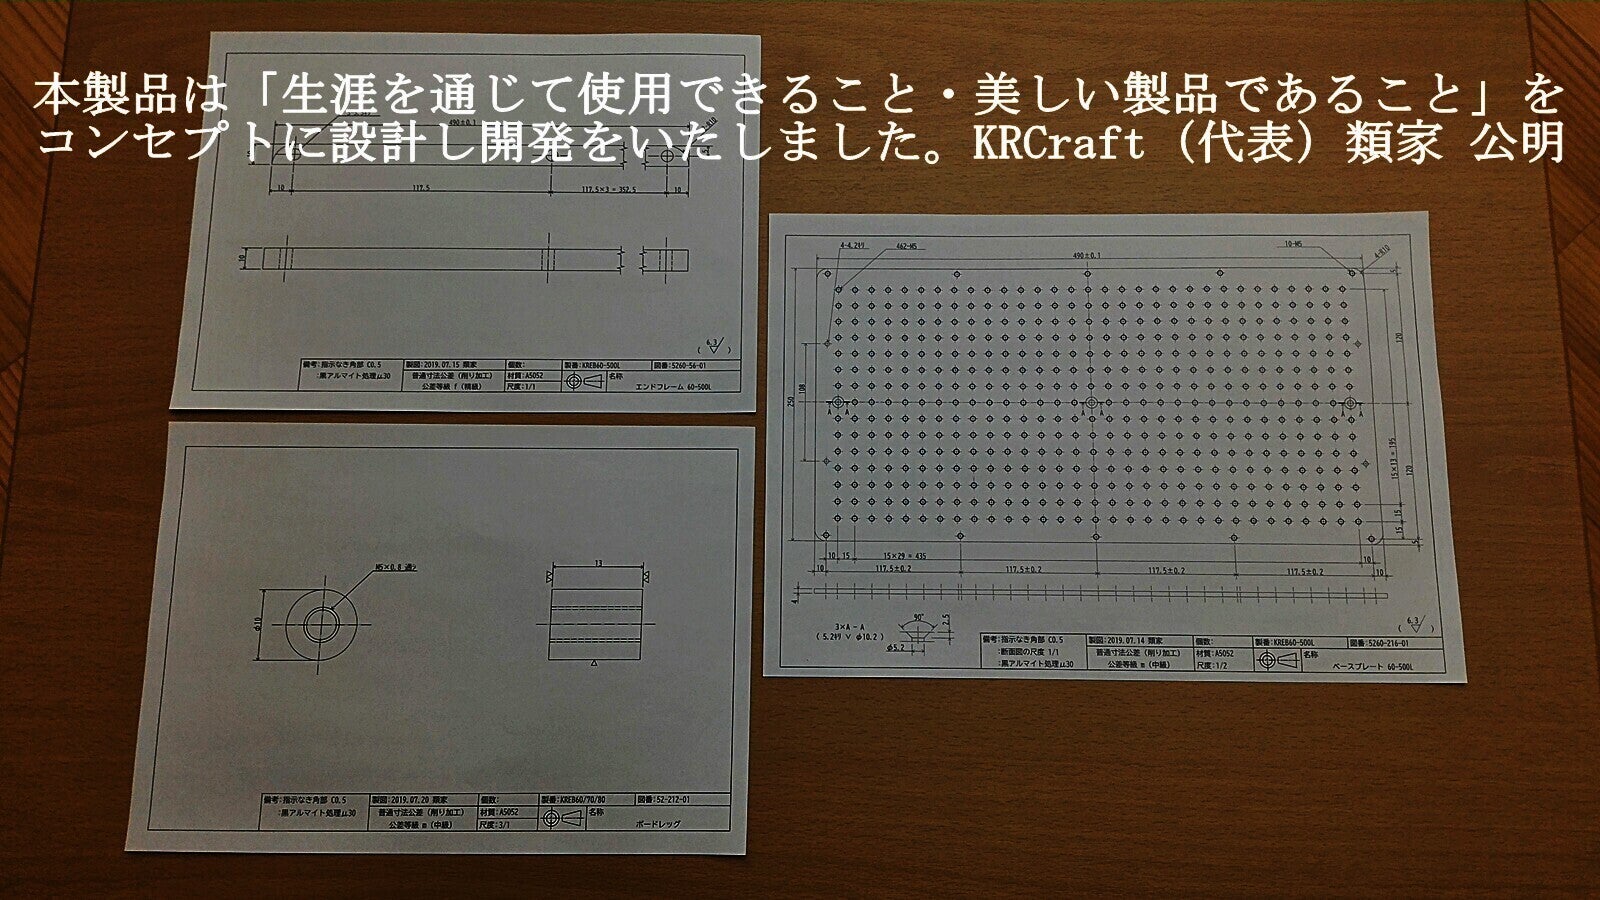 本製品は「生涯を通じて使用できること・美しい製品であること」を
コンセプトに設計し開発をいたしました。KRCraft（代表）類家 公明
490±0.1
4-R10
10
117.5
117.5×3 = 352.5
10
10
6.3
備考：指示なき角部 C0.5
：黒アルマイト処理μ30
製図：2019.07.15 類家
普通寸法公差（削り加工）
公差等級 f（精級）
個数：
材質：A5052
尺度：1/1
製番：KREB60-500L
図番：5260-56-01
名称
エンドフレーム 60-500L
M5×0.8 通シ
φ10
13
備考：指示なき角部 C0.5
：黒アルマイト処理μ30
製図：2019.07.20 類家
普通寸法公差（削り加工）
公差等級 m（中級）
個数：
材質：A5052
尺度：3/1
製番：KREB60/70/80
図番：52-212-01
名称
ボードレッグ
4-4.2キリ
462-M5
10-M5
4-R10
490±0.1
5
120
250
108
A A
A A
A A
15×13 = 195
120
15
15
5
10 15
15×29 = 435
10
10
117.5±0.2
117.5±0.2
117.5±0.2
117.5±0.2
10
4
3×A－A
（5.2キリ ∨ φ10.2）
90°
2.5
φ5.2
6.3
備考：指示なき角部 C0.5
：断面図の尺度 1/1
：黒アルマイト処理μ30
製図：2019.07.14 類家
普通寸法公差（削り加工）
公差等級 m（中級）
個数：
材質：A5052
尺度：1/2
製番：KREB60-500L
図番：5260-216-01
名称
ベースプレート 60-500L